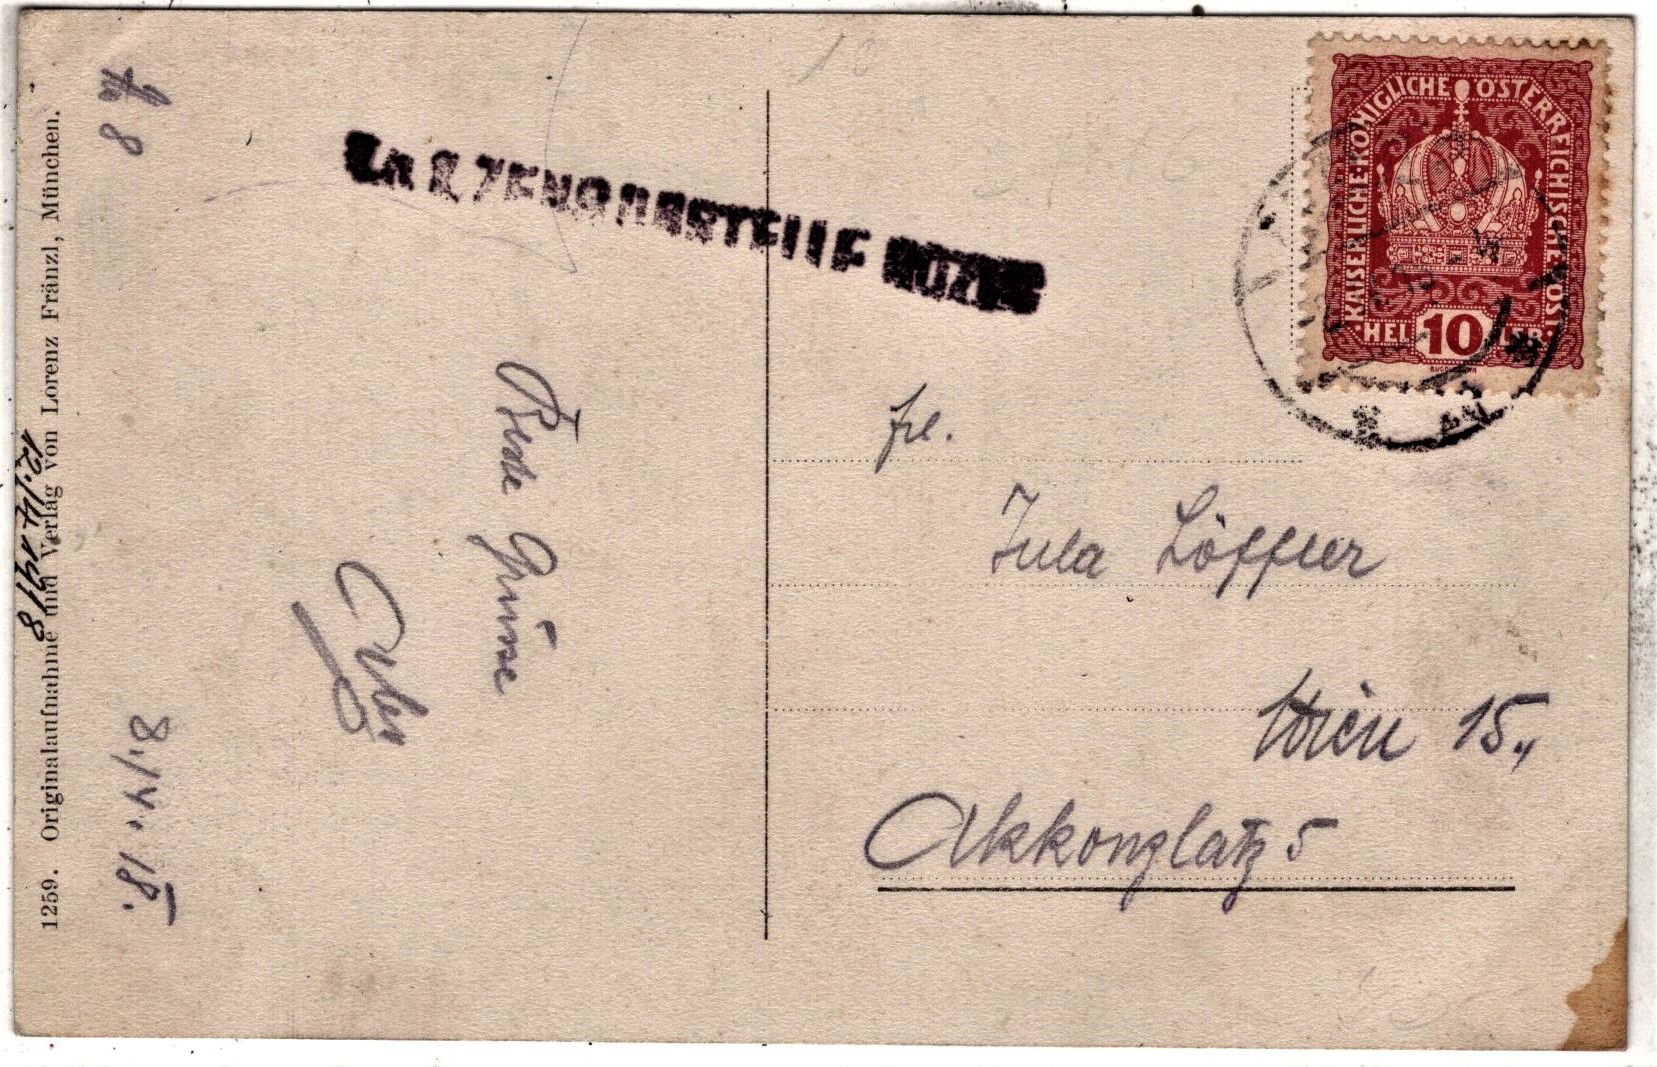 1259. Originalaufnahme und Verlag von Lorenz Fränzl, München.
12.14.1918
8.IV. 18.
Beste Grüsse
ZENSURSTELLE
KAISERLICHE KÖNIGLICHE ÖSTERREICHISCHE POST
HELLER 10
frl.
Jula Löffler
Wien 15.,
Akkonplatz 5